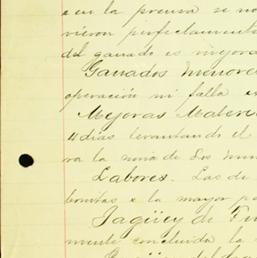 e en la prensa se no
vieron perfectament
del ganado es mejora
Ganados menore
operación ni falla e
Mejoras Materi
4 dias levantando el
ra la noria de Los
Labores. Las de
bonitas e la mayor pa
Jagüey de Fu
mente concluida la